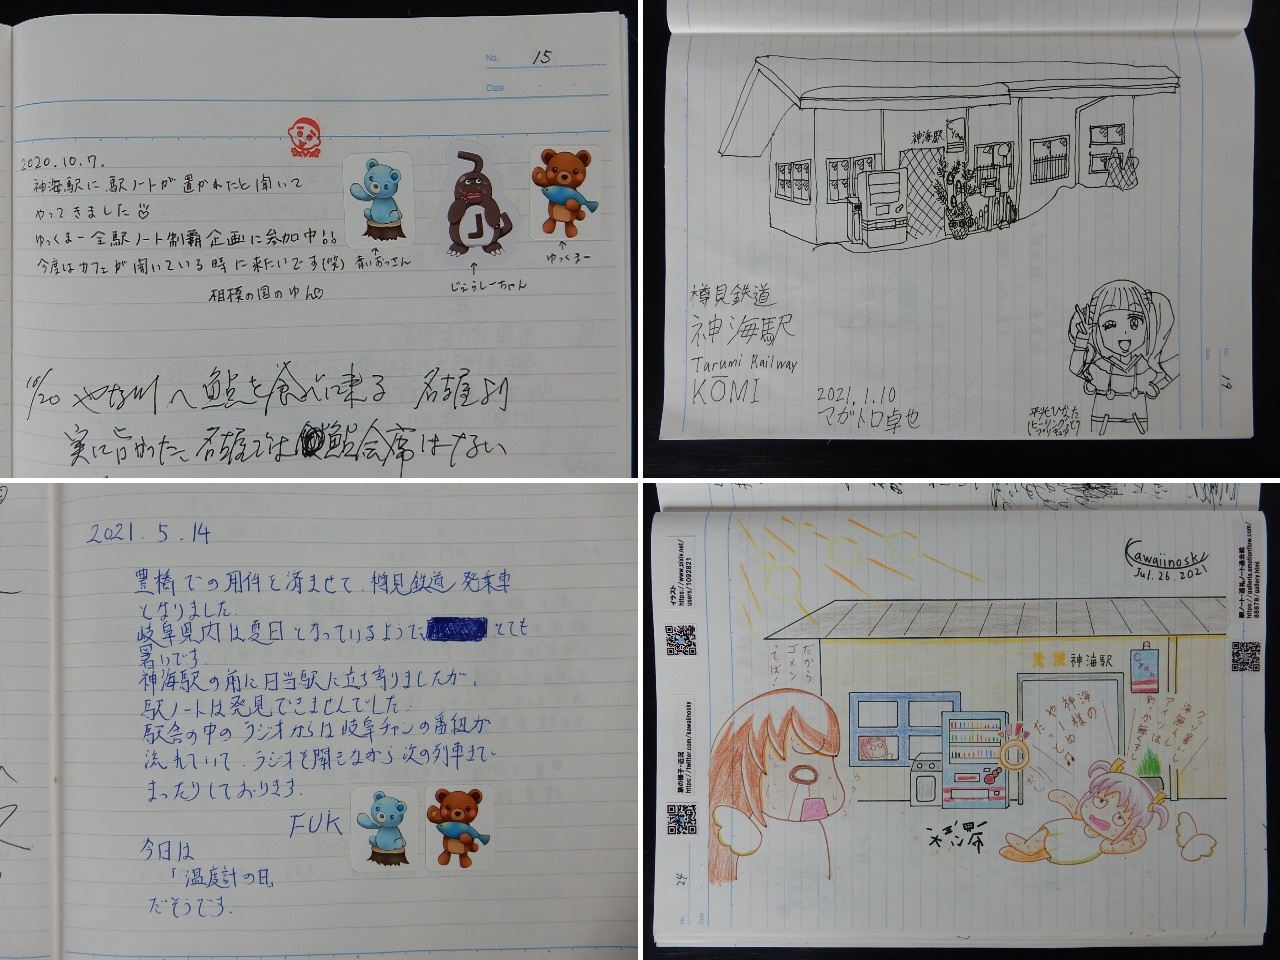 No. 15
Date
2020.10.7.
神海駅に駅ノートが置かれたと聞いて
やってきました
ゆっくまー全駅ノート制覇企画に参加中!!
今度はカフェが開いている時に来たいです(笑)
相模の国のゆん♡
青いおっさん
じぇらしーちゃん
ゆっくまー
10/20 やな川へ鮎を食べに来る 名古屋より
実に旨かった 名古屋では鮎会席はない
神海駅
樽見鉄道
神海駅
Tarumi Railway
KŌMI
2021.1.10
マガトロ卓也
平光ひなた
(ヒーリングっど
プリキュア)
19
2021.5.14
豊橋での用件を済ませて、樽見鉄道発乗車
となりました。
岐阜県内は夏日となっているようで、とても
暑いです。
神海駅の前に日当駅に立ち寄りましたが、
駅ノートは発見できませんでした。
駅舎の中のラジオからは岐阜チャンの番組が
流れていて、ラジオを聞きながら次の列車まで
まったりしております。
FUK
今日は
「温度計の日」
だそうです。
Kawaiinosky
Jul.26.2021
イラスト
https://www.pixiv.net/
users/1092821
旅の様子・近況
https://twitter.com/kawaiinosky
駅ノート・巡礼ノート過去絵
https://galleria.emotionflow.com/
88878/gallery.html
だから
ゴメン
てば!
神海駅
海
神様の
やしゅみ
だっしゅ
24
No.
Date